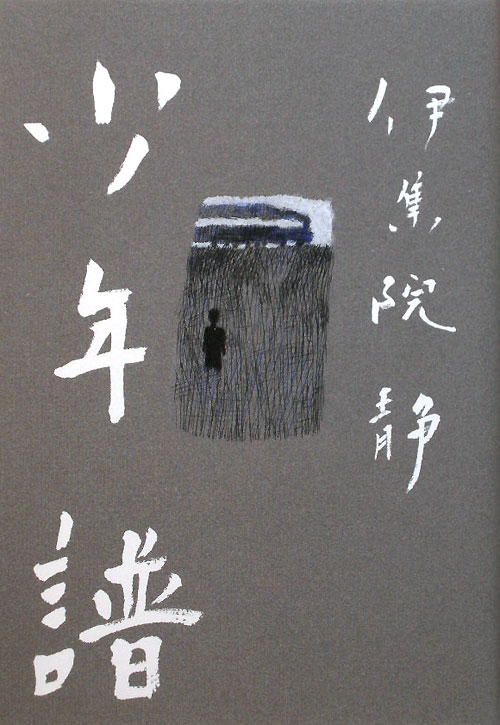 伊集院静
少年譜